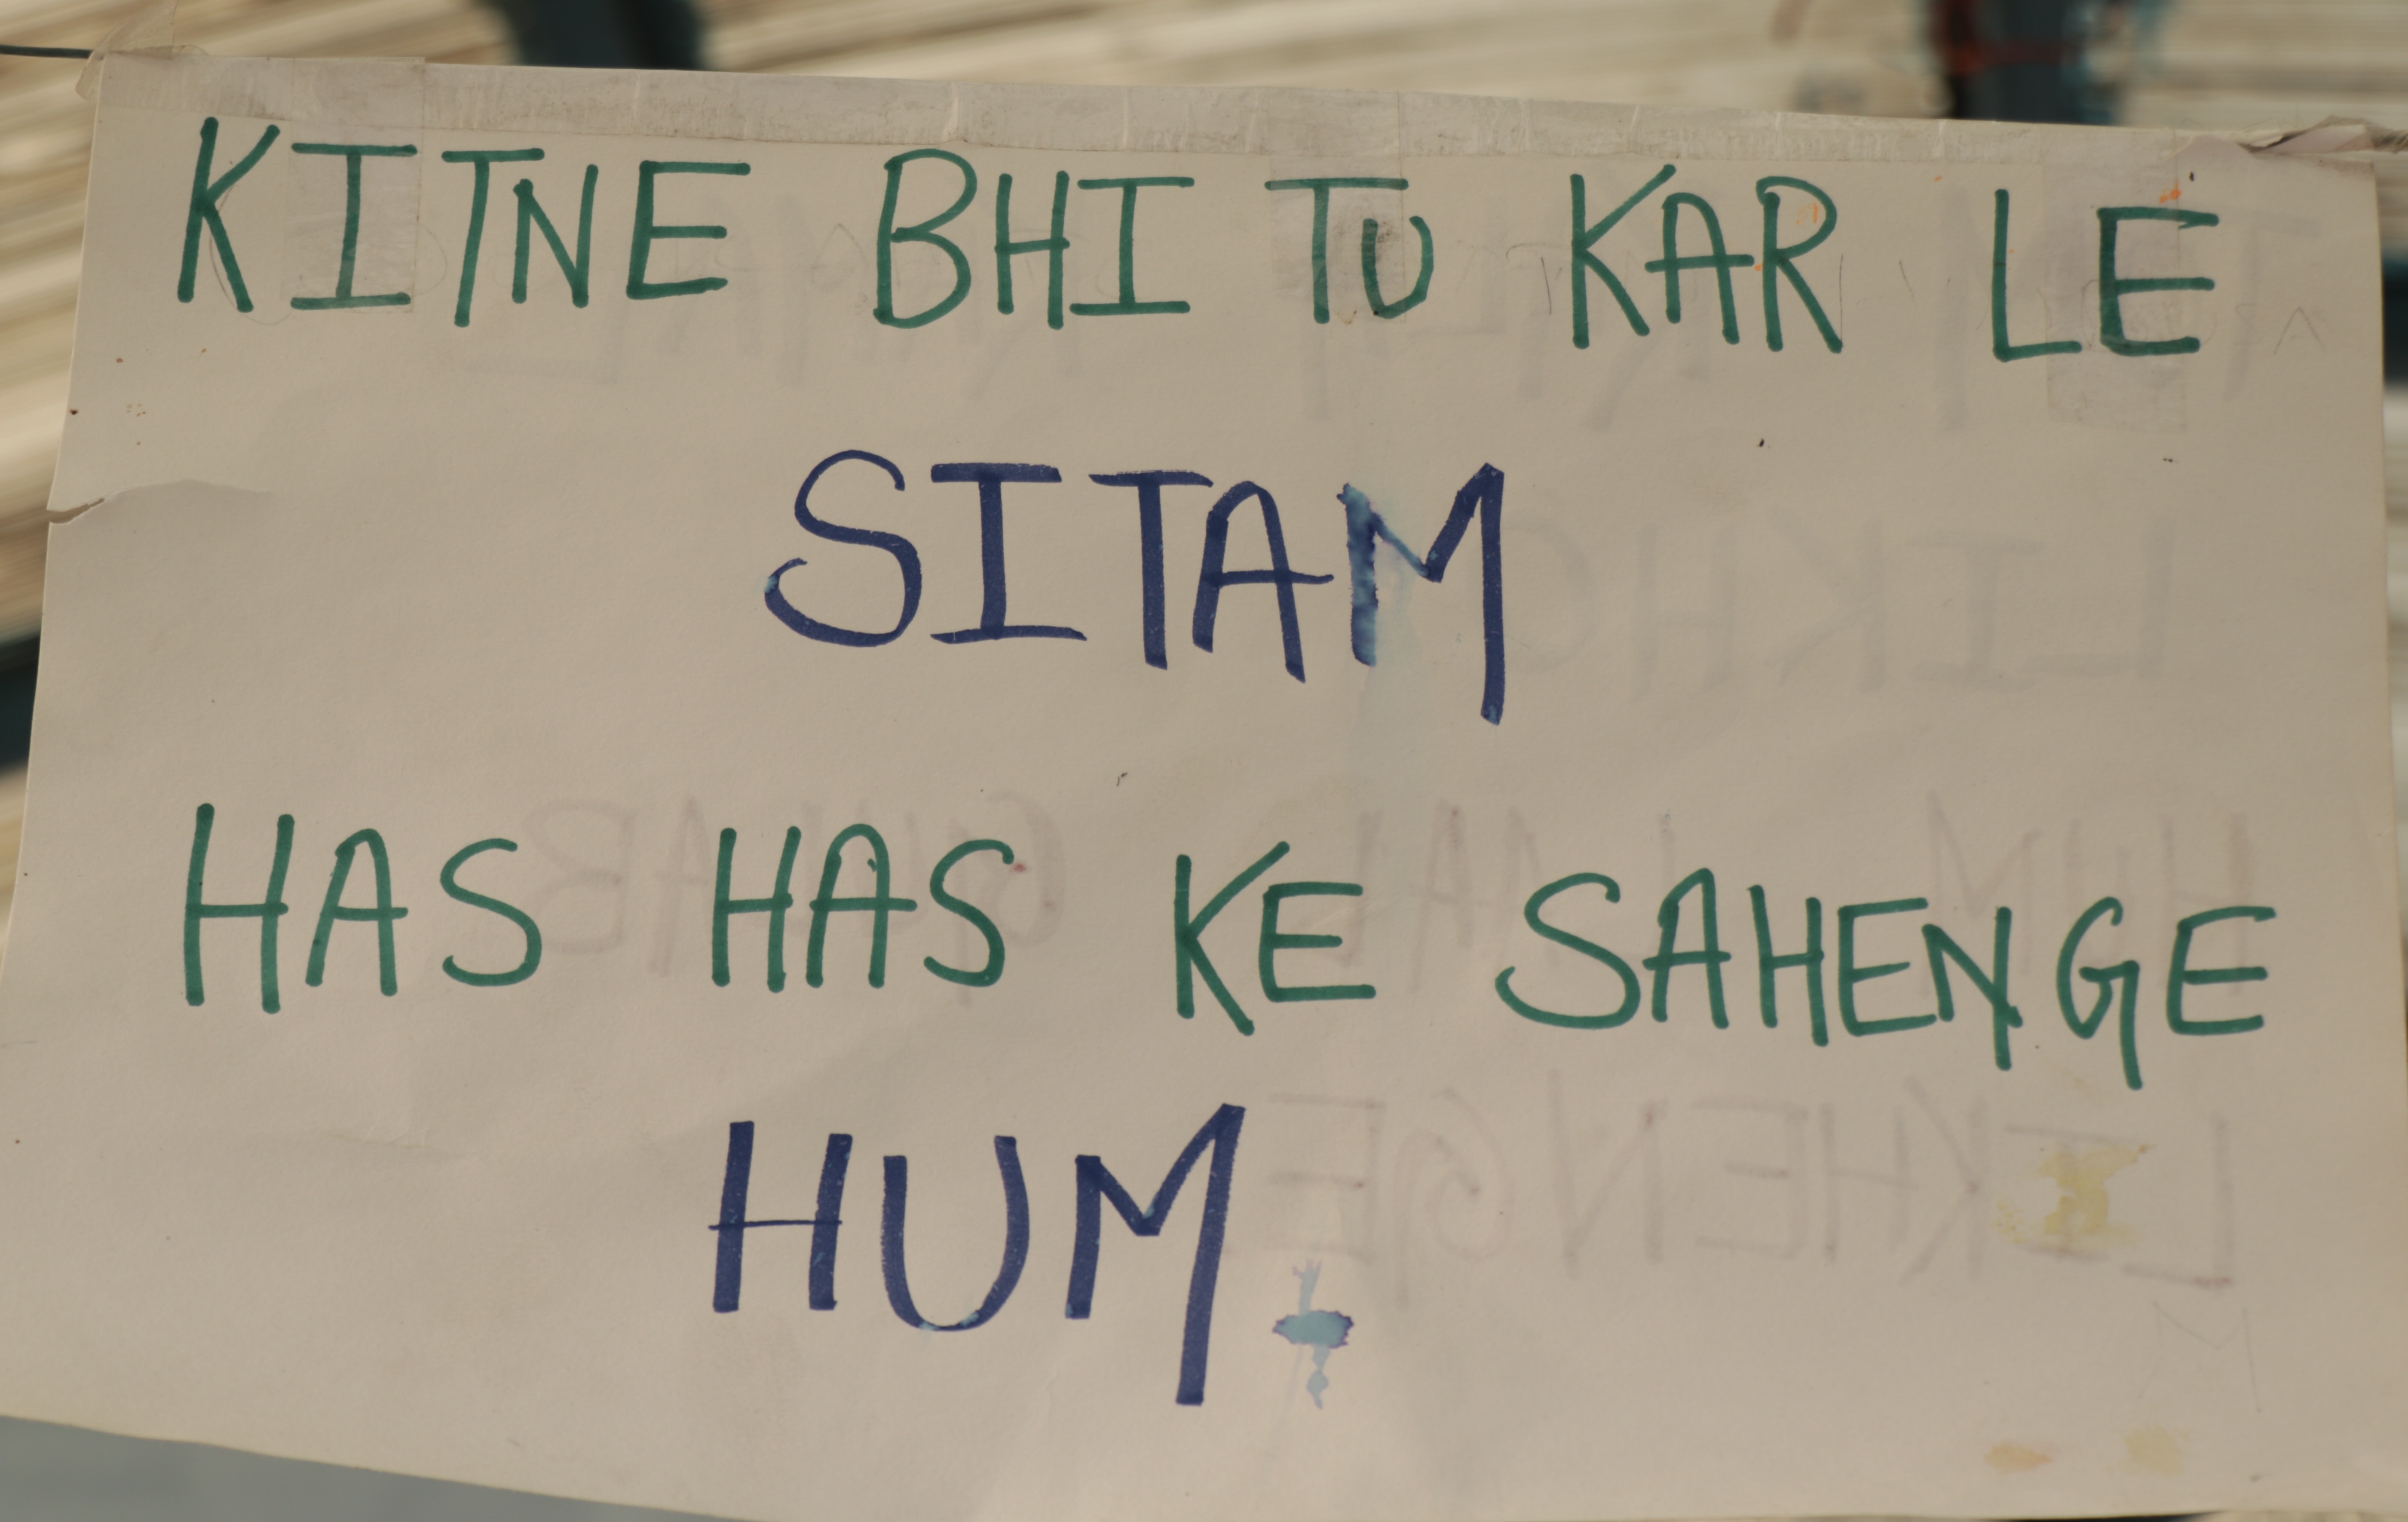 KITNE BHI TU KAR LE
SITAM
HAS HAS KE SAHENGE
HUM.